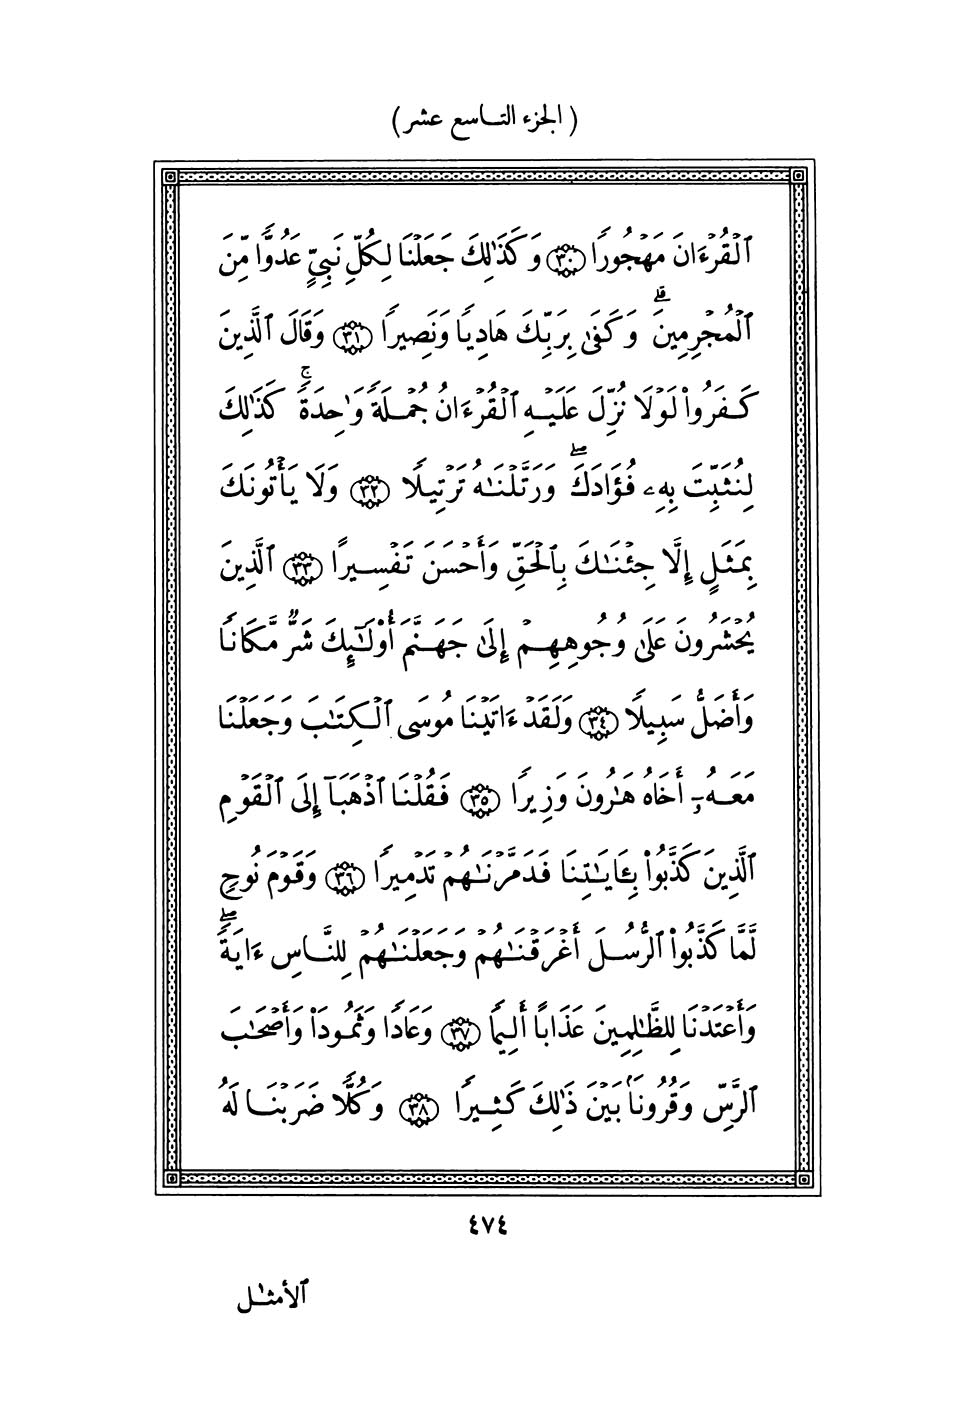 (الجزء التاسع عشر)
ٱلۡقُرۡءَانَ مَهۡجُورٗا ٣٠ وَكَذَٰلِكَ جَعَلۡنَا لِكُلِّ نَبِيٍّ عَدُوّٗا مِّنَ
ٱلۡمُجۡرِمِينَۗ وَكَفَىٰ بِرَبِّكَ هَادِيٗا وَنَصِيرٗا ٣١ وَقَالَ ٱلَّذِينَ
كَفَرُواْ لَوۡلَا نُزِّلَ عَلَيۡهِ ٱلۡقُرۡءَانُ جُمۡلَةٗ وَٰحِدَةٗۚ كَذَٰلِكَ
لِنُثَبِّتَ بِهِۦ فُؤَادَكَۖ وَرَتَّلۡنَٰهُ تَرۡتِيلٗا ٣٢ وَلَا يَأۡتُونَكَ
بِمَثَلٍ إِلَّا جِئۡنَٰكَ بِٱلۡحَقِّ وَأَحۡسَنَ تَفۡسِيرًا ٣٣ ٱلَّذِينَ
يُحۡشَرُونَ عَلَىٰ وُجُوهِهِمۡ إِلَىٰ جَهَنَّمَ أُوْلَٰٓئِكَ شَرّٞ مَّكَانٗا
وَأَضَلُّ سَبِيلٗا ٣٤ وَلَقَدۡ ءَاتَيۡنَا مُوسَى ٱلۡكِتَٰبَ وَجَعَلۡنَا
مَعَهُۥٓ أَخَاهُ هَٰرُونَ وَزِيرٗا ٣٥ فَقُلۡنَا ٱذۡهَبَآ إِلَى ٱلۡقَوۡمِ
ٱلَّذِينَ كَذَّبُواْ بِـَٔايَٰتِنَا فَدَمَّرۡنَٰهُمۡ تَدۡمِيرٗا ٣٦ وَقَوۡمَ نُوحٖ
لَّمَّا كَذَّبُواْ ٱلرُّسُلَ أَغۡرَقۡنَٰهُمۡ وَجَعَلۡنَٰهُمۡ لِلنَّاسِ ءَايَةٗۖ
وَأَعۡتَدۡنَا لِلظَّٰلِمِينَ عَذَابًا أَلِيمٗا ٣٧ وَعَادٗا وَثَمُودَاْ وَأَصۡحَٰبَ
ٱلرَّسِّ وَقُرُونَۢا بَيۡنَ ذَٰلِكَ كَثِيرٗا ٣٨ وَكُلّٗا ضَرَبۡنَا لَهُ
٤٧٤
ٱلأمثَٰل